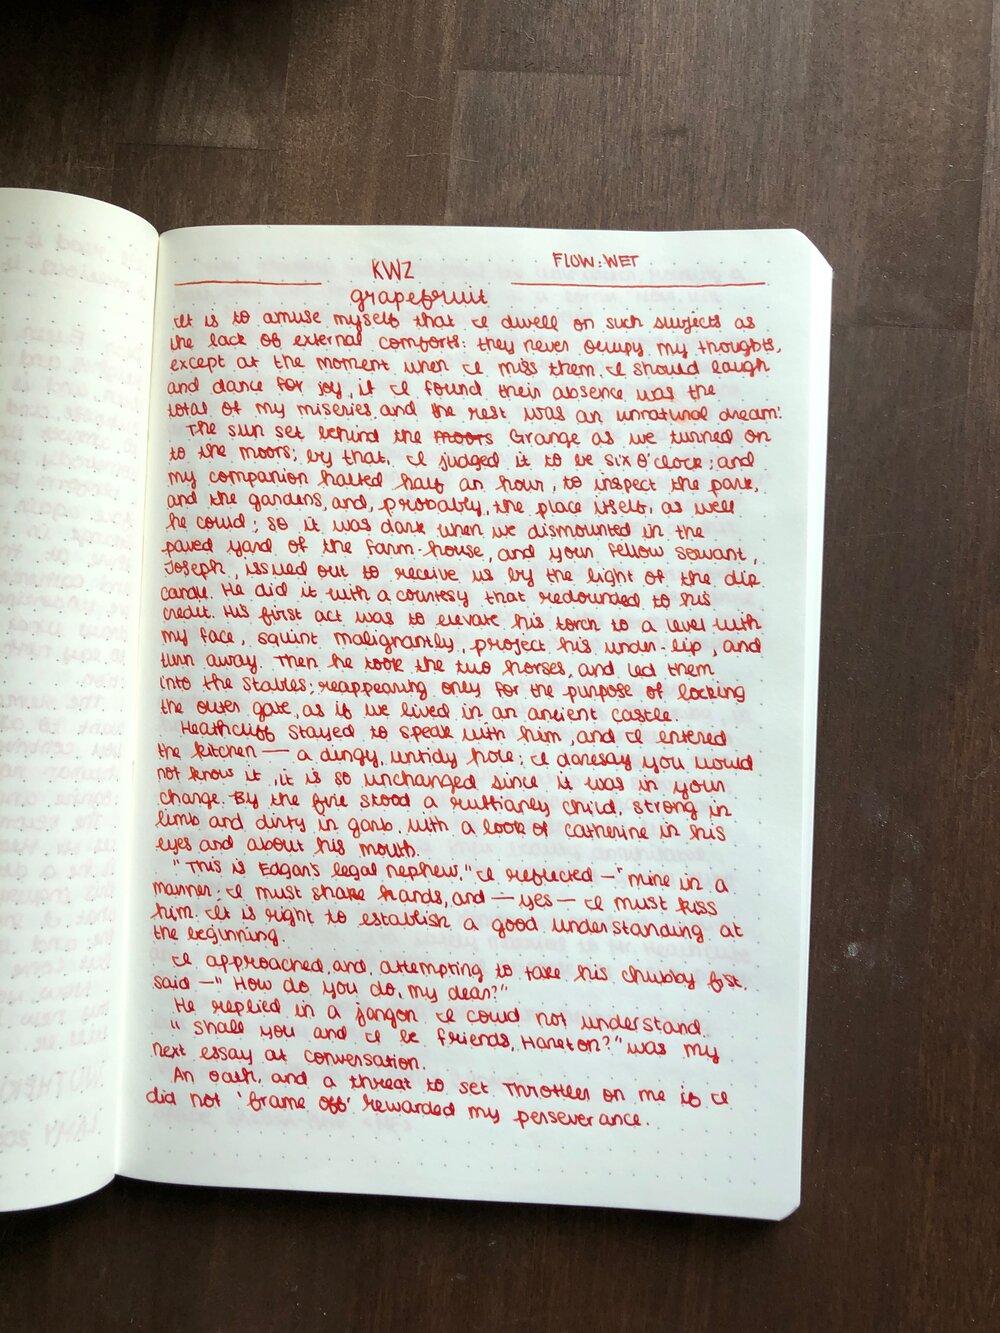 KWZ
FLOW: WET
grapefruit
It is to amuse myself that I dwell on such subjects as
the lack of external comforts: they never occupy my thoughts,
except at the moment when I miss them. I should laugh
and dance for joy, if I found their absence was the
total of my miseries and the rest was an unnatural dream!
The sun set behind the moors Grange as we turned on
to the moors; by that, I judged it to be six o'clock; and
my companion halted half an hour, to inspect the park,
and the gardens, and, probably, the place itself, as well
he could; so it was dark when we dismounted in the
paved yard of the farm-house, and your fellow servant,
Joseph, issued out to receive us by the light of the dip
candle. He did it with a courtesy that redounded to his
credit. His first act was to elevate his torch to a level with
my face, squint malignantly, project his under-lip, and
turn away. Then he took the two horses, and led them
into the stables; reappearing only for the purpose of locking
the outer gate, as if we lived in an ancient castle.
Heathcliff stayed to speak with him, and I entered
the kitchen — a dingy, untidy hole; I daresay you would
not know it, it is so unchanged since it was in your
change. By the fire stood a ruffianly child, strong in
limb and dirty in garb, with a look of Catherine in his
eyes and about his mouth.
"This is Edgar's legal nephew," I reflected — "mine in a
manner; I must shake hands, and — yes — I must kiss
him. It is right to establish a good understanding at
the beginning.
I approached, and, attempting to take his chubby fist,
said — "How do you do, my dear?"
He replied in a jargon I could not understand.
"Shall you and I be friends, Hareton?" was my
next essay at conversation.
An oath, and a threat to set Throttler on me if I
did not 'frame off' rewarded my perseverance.